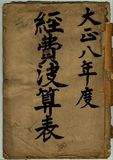 大正八年度
經費決算表